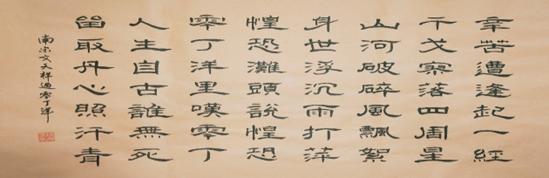 辛苦遭逢起一經
干戈寥落四周星
山河破碎風飄絮
身世浮沉雨打萍
惶恐灘頭說惶恐
零丁洋里嘆零丁
人生自古誰無死
留取丹心照汗青
南宋文天祥過零丁洋